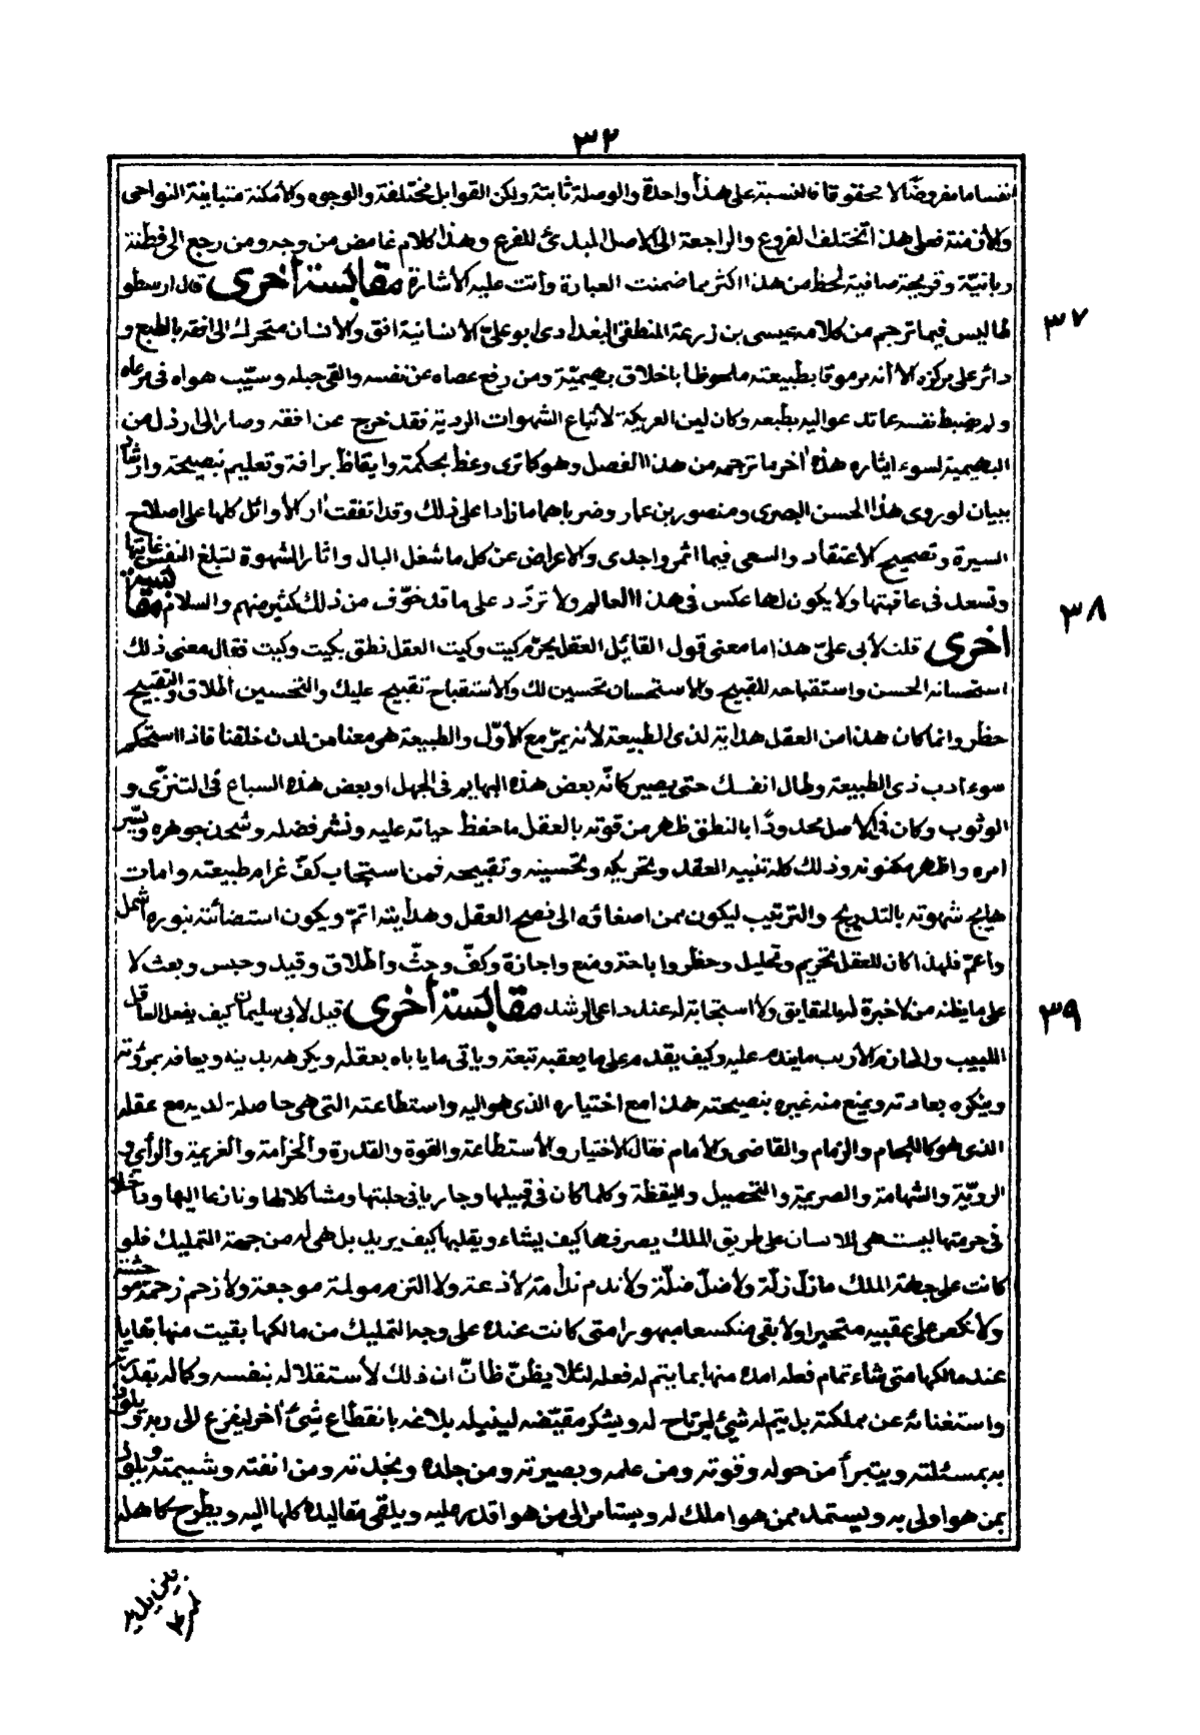 ٣٢
نفسا ما مفروضًا لا محقوقا فالنسبة على هذا واحدة والوصلة ثابتة ولكن القوابل مختلفة والوجوه والأمكنة متباينة النواحى
والأزمنة فعلى هذا تختلف الفروع والراجعة الى الاصل المبدئ للفرع وهذا كلام غامض من وجه ومن رجع الى فطنة
ربانيّة وقريحة صافية لحظ من هذا اكثر مما ضمنت العبارة وأتت عليه الأشارة مقابسة أخرى قال ارسطو
طاليس فيما ترجم من كلامه عيسى بن زرعة المنطقى البغدادى ابو علىّ الأنسانية افق والأنسان متحرك الى افقه بالطبع و
٣٧
دائر على مركزه الا أنه مرموقا بطبيعته ملحوظا باخلاق بهيميّة ومن رفع عصاه عن نفسه والقى حبله وسيّب هواه فى مرعاه
ولم يضبط نفسه عما تدعو اليه بطبعه وكان لين العريكة لأتباع الشهوات الردية فقد خرج عن افقه وصار الى ارذل من
البهيمية لسوء ايثاره هذه أخر ما ترجمه من هذا الفصل وهو كما ترى وعظ بحكمة وايقاظ برافة وتعليم بنصيحة وارشاد
ببيان لو روى هذا الحسن البصرى ومنصور بن عمار وضرباهما ما زادا على ذلك وقد اتفقت أر الأوائل كلها على اصلاح
السيرة وتصحيح الأعتقاد والسعى فيما اثمر واجدى والاعراض عن كل ما شغل البال واثار الشهوة لتبلغ النفس غايتها
وتسعد فى عاقبتها ولا يكون لها عكس فى هذا العالم ولا تردّد على ما قد خوّف من ذلك كثير منهم والسلام مقابسة
٣٨
اخرى قلت لأبى علىّ هذا ما معنى قول القائل العقل يحرّم كيت وكيت العقل نطق بكيت وكيت فقال معنى ذلك
استحسانه الحسن واستقباحه للقبيح والاستحسان تحسين لك والأستقباح تقبيح عليك والتحسين اطلاق والتقبيح
حظر وانما كان هذا من العقل هداية لذى الطبيعة لأنه يمرّ مع الأوّل والطبيعة هى معنا من لدن خلقنا فاذا استحكم
سوء ادب ذى الطبيعة وطال انفسك حتى يصير كأنّه بعض هذه البهايم فى الجهل او بعض هذه السباع فى التنزّى و
الوثوب وكان فى الاصل محدودًا بالنطق ظهر من قوته بالعقل ما حفظ حياته عليه ونشر فضله وشحن جوهره ويسّر
امره واظهر مكنونه وذلك كله تنبيه العقل وتحريكه وتحسينه وتقبيحه فمن استجاب كفّ غرام طبيعته وامات
هايج شهوته بالتدريج والترتيب ليكون ممن اصفاؤه الى نصح العقل وهدايته اتمّ ويكون استضائته بنوره اشمل
واعمّ فلهذا كان للعقل تحريم وتحليل وحظر واباحة ومنع واجازة وكفّ وحثّ واطلاق وقيد وحبس وبعث لا
على ما يظنه من لا خبرة له بالحقايق ولا استجابة له عند داعى الرشد مقابسة أخرى قيل لأبى سليمان كيف يفعل العاقل
٣٩
اللبيب والحازم الأريب ما يندم عليه وكيف يقدم على ما يعقبه تبعة ويأتى ما ياباه بعقله ويكرهه بدينه ويعافه بمروته
وينكره بعادته ويمنع منه غيره بنصيحته هذا مع اختياره الذى هو اليه واستطاعته التى هى حاصلة لديه مع عقله
الذى هو كاللجام والزمام والقاضى والأمام فقال الاختيار والأستطاعة والقوة والقدرة والحزامة والعزيمة والرأى و
الرويّة والشهامة والصريمة والتحصيل واليقظة وكلما كان فى قبيلها وجاريا فى حلبتها ومشاكلا لها ونازعا اليها وداخلا
فى حومتها ليست هى للانسان على طريق الملك يصرفها كيف يشاء ويقلبها كيف يريد بل هى له من جهة التمليك فلو
كانت على جهة الملك ما زلّ زلّة ولا ضلّ ضلّة ولا ندم ندامة لأذعة ولا التزم مولمة موجعة ولا زحم زحمة موحشة
ولا نكص على عقبيه متحيرا ولا بقى منكسعا مبهورا متى كانت عنده على وجه التمليك من مالكها بقيت منها بقايا
عند مالكها متى شاء تمام فعله امده منها بما يتم له فعله لئلا يظنّ ظانّ ان ذلك لأستقلاله بنفسه وكماله بقدرته
واستغنائه عن مملكته بل يتم له شيئ ليرتاح له ويشكر مقيّضه لينيله بلاغه بانقطاع شيئ أخر ليفزع الى ربه ويلوذ
به بمسئلته ويتبرأ من حوله وقوته ومن علمه وبصيرته ومن جلده ونجدته ومن انفته وشيمته ويلوذ
بمن هو اولى به ويستمد ممن هو املك له ويستامر الى من هو اقدر عليه ويلقى مقاليده كلها اليه ويطرح كاهله
بين يديه